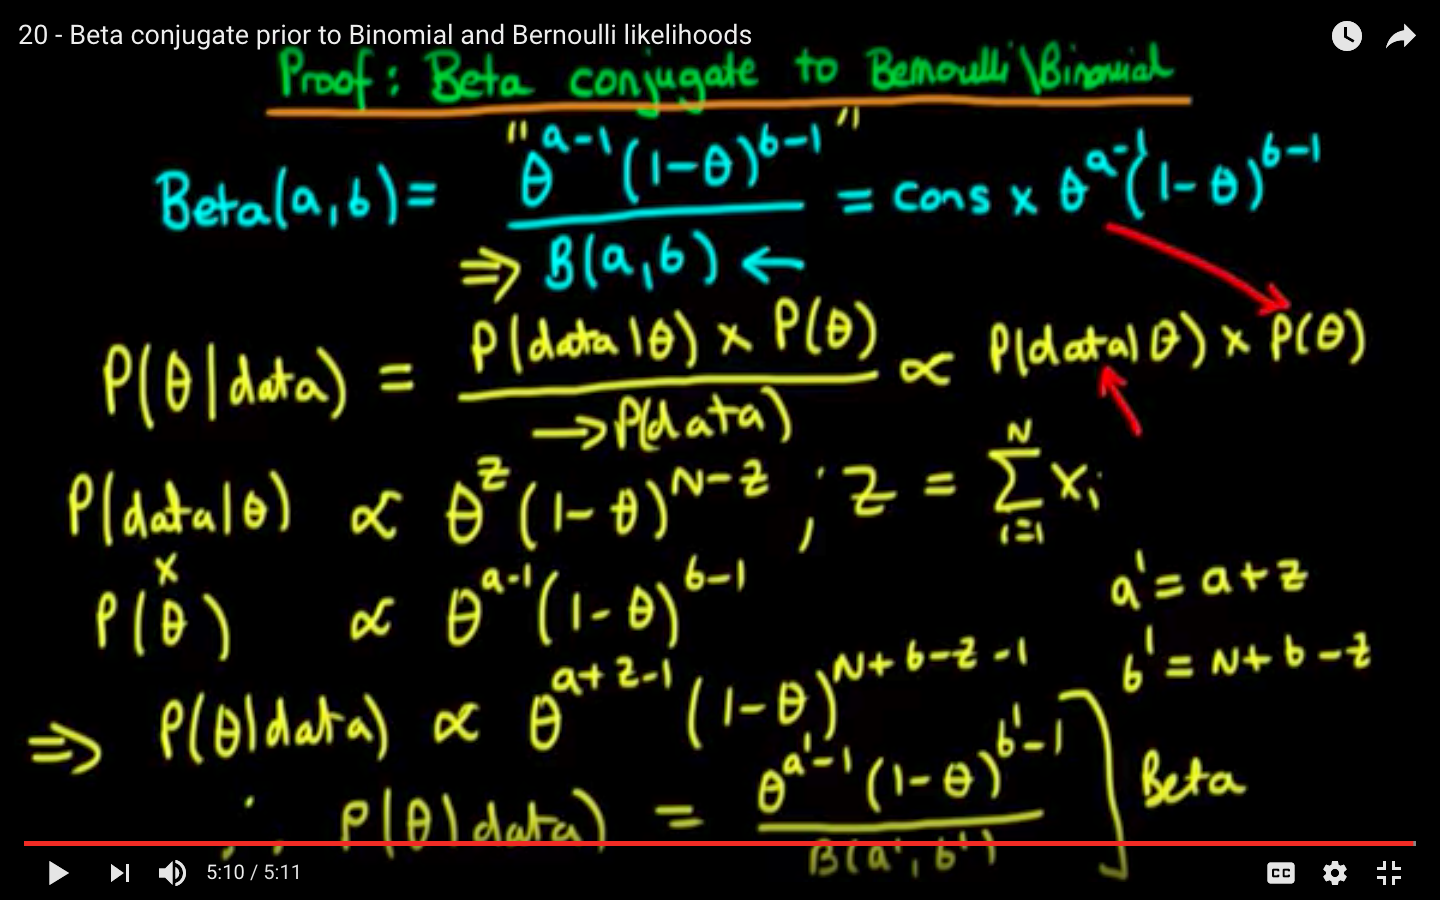 20 - Beta conjugate prior to Binomial and Bernoulli likelihoods
Proof: Beta conjugate to Bernoulli\Binomial
Beta(a,b) = "θ^{a-1}(1-θ)^{b-1}" / B(a,b) ← = cons × θ^{a-1}(1-θ)^{b-1}
⇒
P(θ|data) = P(data|θ) × P(θ) / →P(data) ∝ P(data|θ) × P(θ)
P(data|θ) ∝ θ^z (1-θ)^{N-z} ; z = Σ_{i=1}^{N} x_i
×
P(θ) ∝ θ^{a-1}(1-θ)^{b-1}
a' = a+z
b' = N+b-z
⇒ P(θ|data) ∝ θ^{a+z-1} (1-θ)^{N+b-z-1}
∴ P(θ|data) = θ^{a'-1}(1-θ)^{b'-1} / B(a',b') ] Beta
5:10 / 5:11
CC